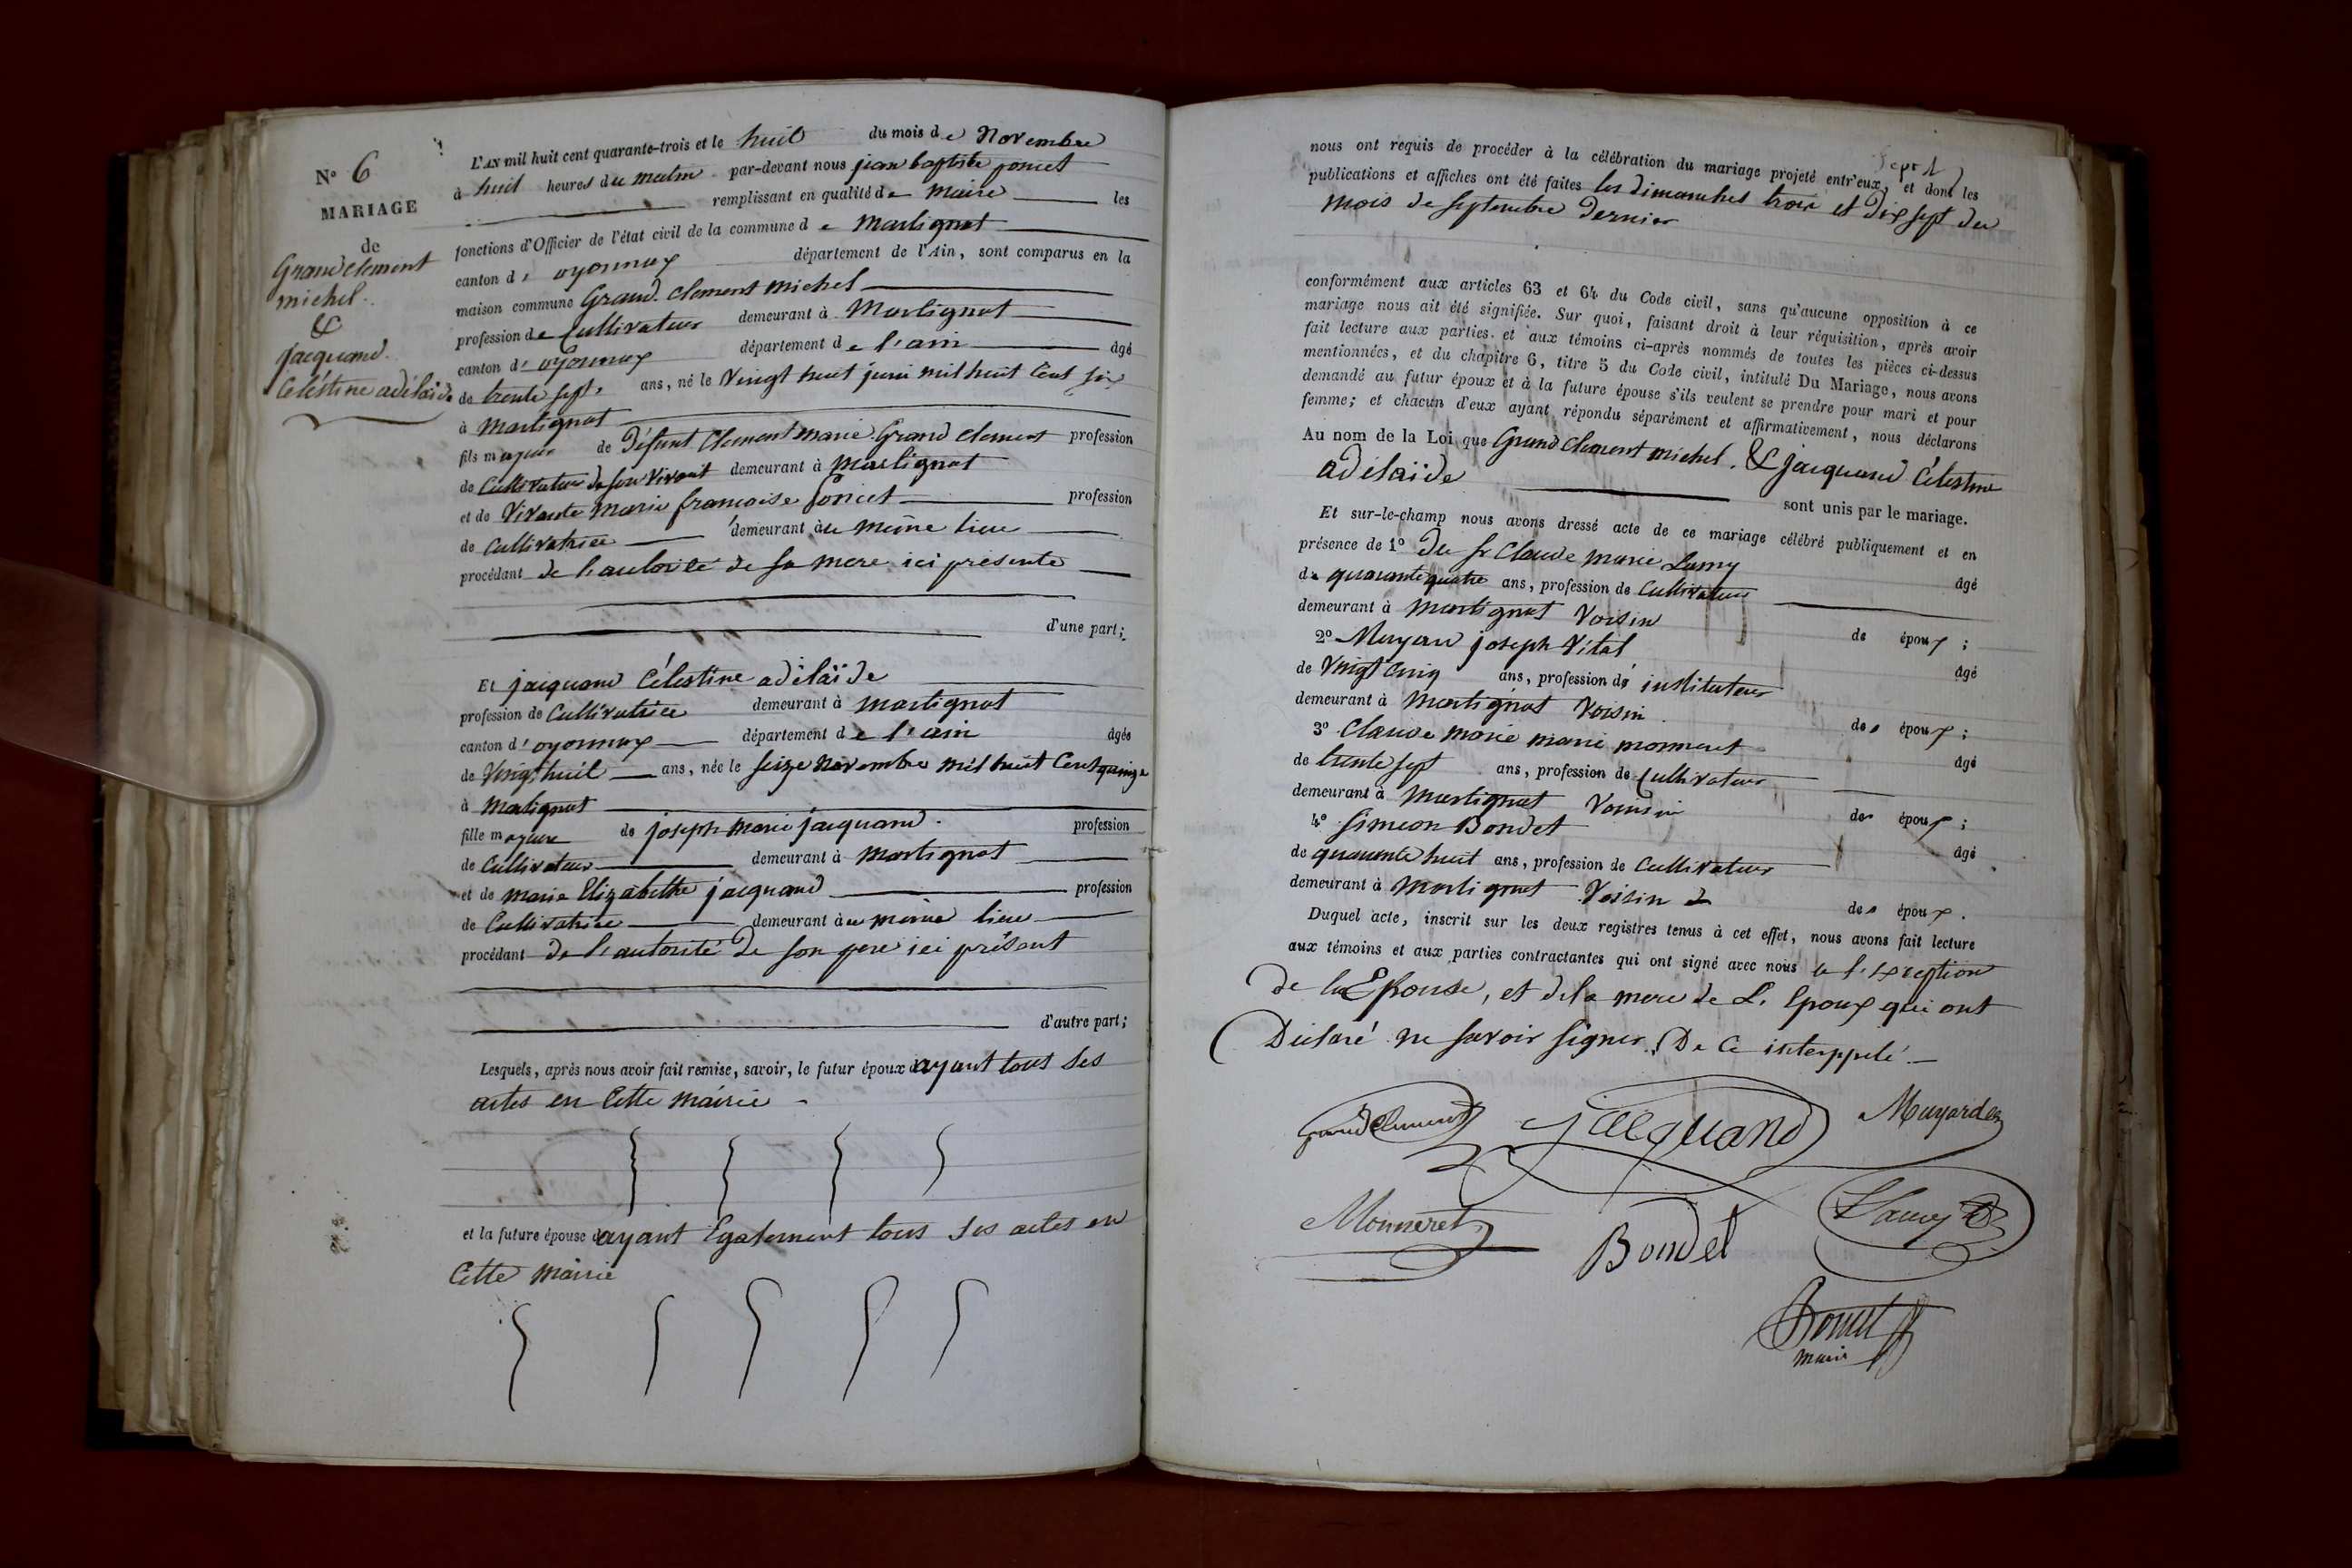 N° 6
MARIAGE
de
Grand clement
michel
&
jacquand
Celéstine adélaïde
L'AN mil huit cent quarante-trois et le huit du mois de Novembre
à huit heures du matin par-devant nous jean baptiste poncet
remplissant en qualité de Maire les
fonctions d'Officier de l'état civil de la commune de Martignat
canton d'oyonnax département de l'Ain, sont comparus en la
maison commune Grand clement michel
profession de Cultivateur demeurant à Martignat
canton d'oyonnax département de l'ain âgé
de trente sept ans, né le Vingt huit juin mil huit Cent six
à Martignat
fils majeur de Défunt Clement marie Grand Clement profession
de Cultivateur de son Vivant demeurant à Martignat
et de Vivante Marie francoise Poncet profession
de Cultivatrice demeurant au même lieu
procédant de l'autorité de sa mere ici présente
d'une part;
Et jacquand Célestine adélaïde
profession de Cultivatrice demeurant à Martignat
canton d'oyonnax département de l'ain âgée
de Vingt huit ans, née le seize Novembre mil huit Cent quinze
à Martignat
fille majeure de joseph marie jacquand profession
de Cultivateur demeurant à Martignat
et de marie Elizabethe jacquand profession
de Cultivatrice demeurant au même lieu
procédant de l'autorité de son pere ici présent
d'autre part;
Lesquels, après nous avoir fait remise, savoir, le futur époux ayant tous ses
actes en Cette Mairie
et la future épouse ayant Egalement tous ses actes en
Cette Mairie
nous ont requis de procéder à la célébration du mariage projeté entr'eux, et dont les
publications et affiches ont été faites les dimanches trois et dix sept du
mois de septembre dernier
conformément aux articles 63 et 64 du Code civil, sans qu'aucune opposition à ce
mariage nous ait été signifiée. Sur quoi, faisant droit à leur réquisition, après avoir
fait lecture aux parties et aux témoins ci-après nommés de toutes les pièces ci-dessus
mentionnées, et du chapitre 6, titre 5 du Code civil, intitulé Du Mariage, nous avons
demandé au futur époux et à la future épouse s'ils veulent se prendre pour mari et pour
femme; et chacun d'eux ayant répondu séparément et affirmativement, nous déclarons
Au nom de la Loi que Grand Clement michel & jacquand Célestine
adélaïde
sont unis par le mariage.
Et sur-le-champ nous avons dressé acte de ce mariage célébré publiquement et en
présence de 1° du sr Claude Marie Lamy âgé
de quarante quatre ans, profession de Cultivateur
demeurant à Martignat Voisin de époux;
2° Muyard joseph Vital âgé
de Vingt cinq ans, profession de instituteur
demeurant à Martignat Voisin des époux;
3° Claude marie marie monneret âgé
de trente sept ans, profession de Cultivateur
demeurant à Martignat Voisin des époux;
4° Simeon Bondet âgé
de quarante huit ans, profession de Cultivateur
demeurant à Martignat Voisin des époux.
Duquel acte, inscrit sur les deux registres tenus à cet effet, nous avons fait lecture
aux témoins et aux parties contractantes qui ont signé avec nous a l'exception
de la Epouse, et de la mere de L'Epoux qui ont
Déclaré ne savoir signer, De Ce interppelé.
grandclement Jacquand Muyard
Monneret Bondet Lamy
Poncet
maire